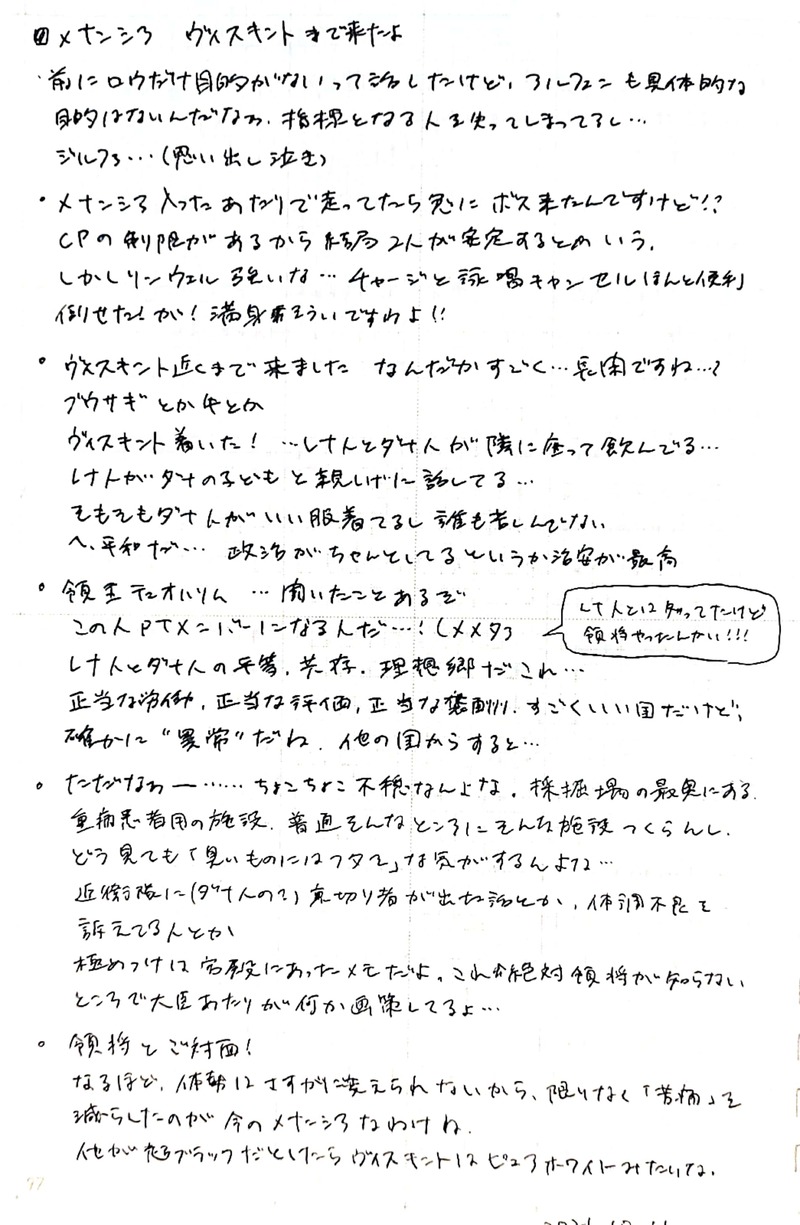 メナンシア ヴィスキントまで来たよ
・前にロウだけ目的がないって話したけど、アルフェンも具体的な
目的はないんだなぁ、指標となる人を失ってしまってるし…
ジルファ…(思い出し泣き)
・メナンシア入ったあたりで走ってたら急にボス来たんですけど!?
CPの制限があるから結局2人が安定するとかいう。
しかしリンウェル強いな…チャージと詠唱キャンセルほんと便利
倒せた!が!満身創いですわよ!!
・ヴィスキント近くまで来ました なんだかすごく…長閑ですね…?
ブウサギとか牛とか
ヴィスキント着いた! …レナ人とダナ人が隣に座って飲んでる…
レナ人がダナの子どもと親しげに話してる…
そもそもダナ人がいい服着てるし誰も苦しんでない
へ、平和だ… 政治がちゃんとしてるというか治安が最高
・領主テュオハリム …聞いたことあるぞ
この人PTメンバーになるんだ…!(メメタァ
レナ人とは知ってたけど
領将やったんかい!!!
レナ人とダナ人の平等、共存、理想郷だこれ…
正当な労働、正当な評価、正当な報酬、すごくいい国だけど、
確かに"異常"だね、他の国からすると…
・ただなぁー……ちょこちょこ不穏なんよな。採掘場の最奥にある
重病患者用の施設、普通そんなところにそんな施設つくらんし、
どう見ても「臭いものにはフタを」な気がするんよな…
近衛隊に(ダナ人の?)裏切り者が出た話とか、体調不良を
訴えてる人とか
極めつけは宮殿にあったメモだよ。これ絶対領将が知らない
ところで大臣あたりが何か画策してるよ…
・領将とご対面!
なるほど、体制はさすがに変えられないから、限りなく「苦痛」を
減らしたのが今のメナンシアなわけね。
他が超ブラックだとしたらヴィスキントはピュアホワイトみたいな。